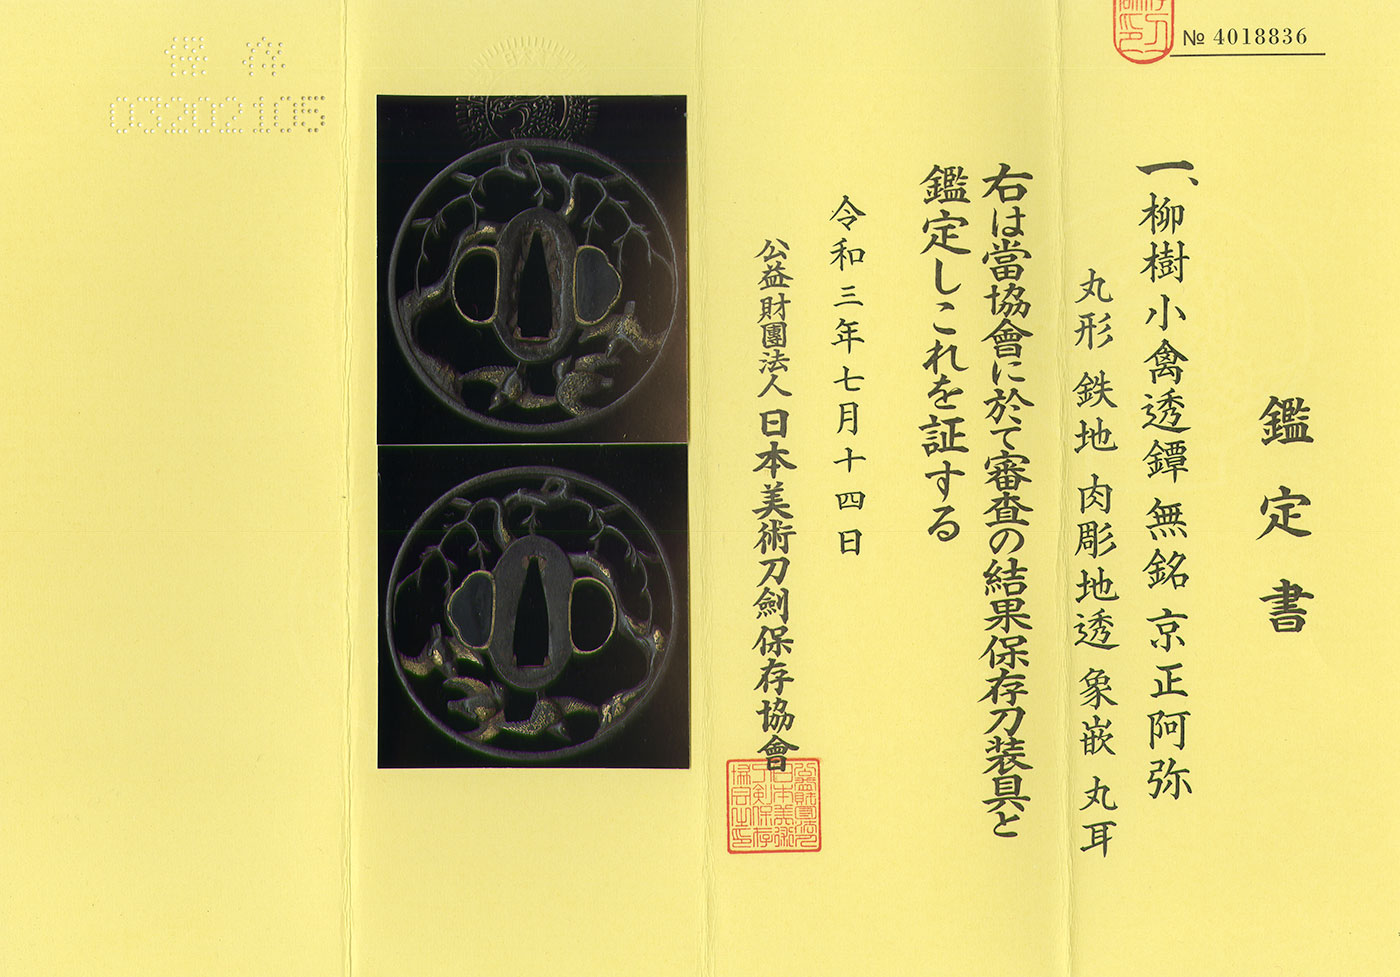 № 4018836
鑑定書
一、柳樹小禽透鐔 無銘 京正阿弥
丸形 鉄地 肉彫地透 象嵌 丸耳
右は當協會に於て審査の結果保存刀装具と
鑑定しこれを証する
令和三年七月十四日
公益財團法人 日本美術刀劍保存協會
保存
03202105